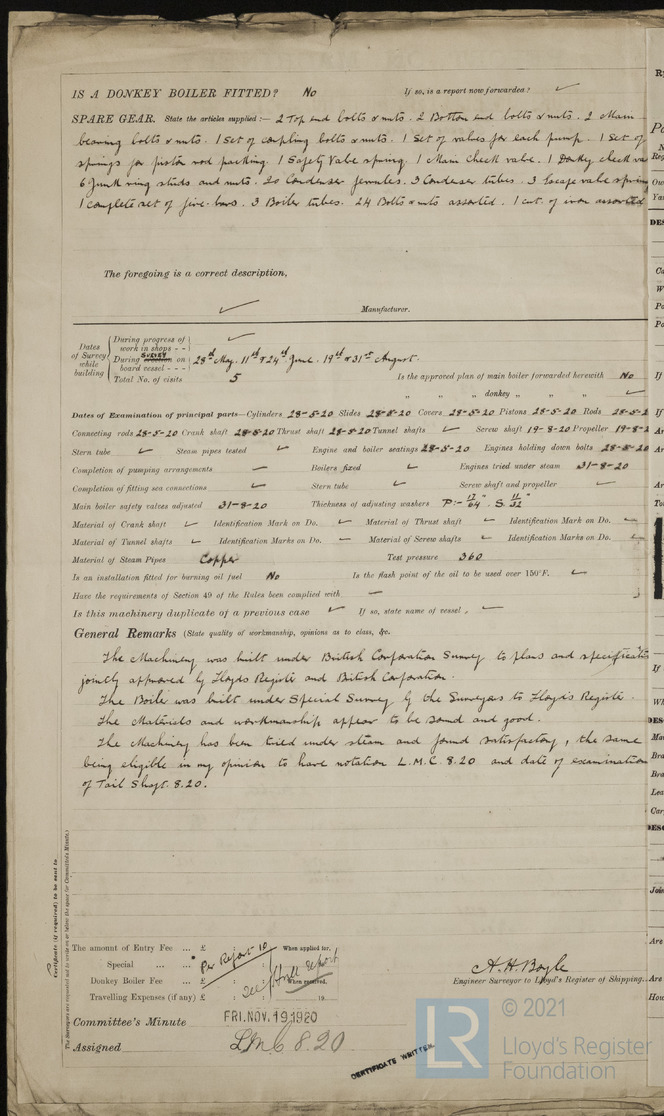 IS A DONKEY BOILER FITTED? No If so, is a report now forwarded? ✓
SPARE GEAR. State the articles supplied:— 2 Top end bolts & nuts. 2 Bottom end bolts & nuts. 2 Main
bearing bolts & nuts. 1 Set of coupling bolts & nuts. 1 Set of valves for each pump. 1 Set of
springs for piston rod packing. 1 Safety Valve spring. 1 Main check valve. 1 Donkey check va
6 Junk ring studs and nuts. 20 Condenser ferrules. 3 Condenser tubes. 3 Escape valve spring
1 complete set of fire-bars. 3 Boiler tubes. 24 Bolts & nuts assorted. 1 cwt. of iron assorted
The foregoing is a correct description,
✓ Manufacturer.
Dates of Survey while building
During progress of work in shops - - ✓
During erection SURVEY on board vessel - - - 28th May. 11th & 24th June. 19th & 31st August.
Total No. of visits 5 Is the approved plan of main boiler forwarded herewith No
" " " donkey " " " ✓
Dates of Examination of principal parts—Cylinders 28-5-20 Slides 28-5-20 Covers 28-5-20 Pistons 28-5-20 Rods 28-5-2
Connecting rods 28-5-20 Crank shaft 28-5-20 Thrust shaft 28-5-20 Tunnel shafts ✓ Screw shaft 19-8-20 Propeller 19-8-2
Stern tube ✓ Steam pipes tested ✓ Engine and boiler seatings 28-5-20 Engines holding down bolts 28-5-20
Completion of pumping arrangements — Boilers fixed ✓ Engines tried under steam 31-8-20
Completion of fitting sea connections ✓ Stern tube ✓ Screw shaft and propeller —
Main boiler safety valves adjusted 31-8-20 Thickness of adjusting washers P:- 17/64" S. 11/32"
Material of Crank shaft ✓ Identification Mark on Do. ✓ Material of Thrust shaft ✓ Identification Mark on Do. ✓
Material of Tunnel shafts ✓ Identification Marks on Do. ✓ Material of Screw shafts ✓ Identification Marks on Do. ✓
Material of Steam Pipes Copper Test pressure 360
Is an installation fitted for burning oil fuel No Is the flash point of the oil to be used over 150°F. ✓
Have the requirements of Section 49 of the Rules been complied with —
Is this machinery duplicate of a previous case ✓ If so, state name of vessel. ✓
General Remarks (State quality of workmanship, opinions as to class, &c.
The Machinery was built under British Corporation Survey to plans and specificatio
jointly approved by Lloyds Register and British Corporation.
The Boiler was built under Special Survey by the Surveyors to Lloyd's Register.
The Materials and workmanship appear to be sound and good.
The Machinery has been tried under steam and found satisfactory, the same
being eligible in my opinion to have notation L.M.C. 8.20 and date of examination
of Tail Shaft. 8.20.
Certificate (if required) to be sent to
The Surveyors are requested not to write on or below the space for Committee's Minute.
The amount of Entry Fee ... £ : : When applied for,
Special ... ... £ : : Per Report 10
Donkey Boiler Fee ... £ : : When received,
Travelling Expenses (if any) £ : : 19
See Hull report
A. H. Boyle
Engineer Surveyor to Lloyd's Register of Shipping.
Committee's Minute FRI. NOV. 19 1920
Assigned LMC 8.20
CERTIFICATE WRITTEN.
LR
© 2021
Lloyd's Register
Foundation